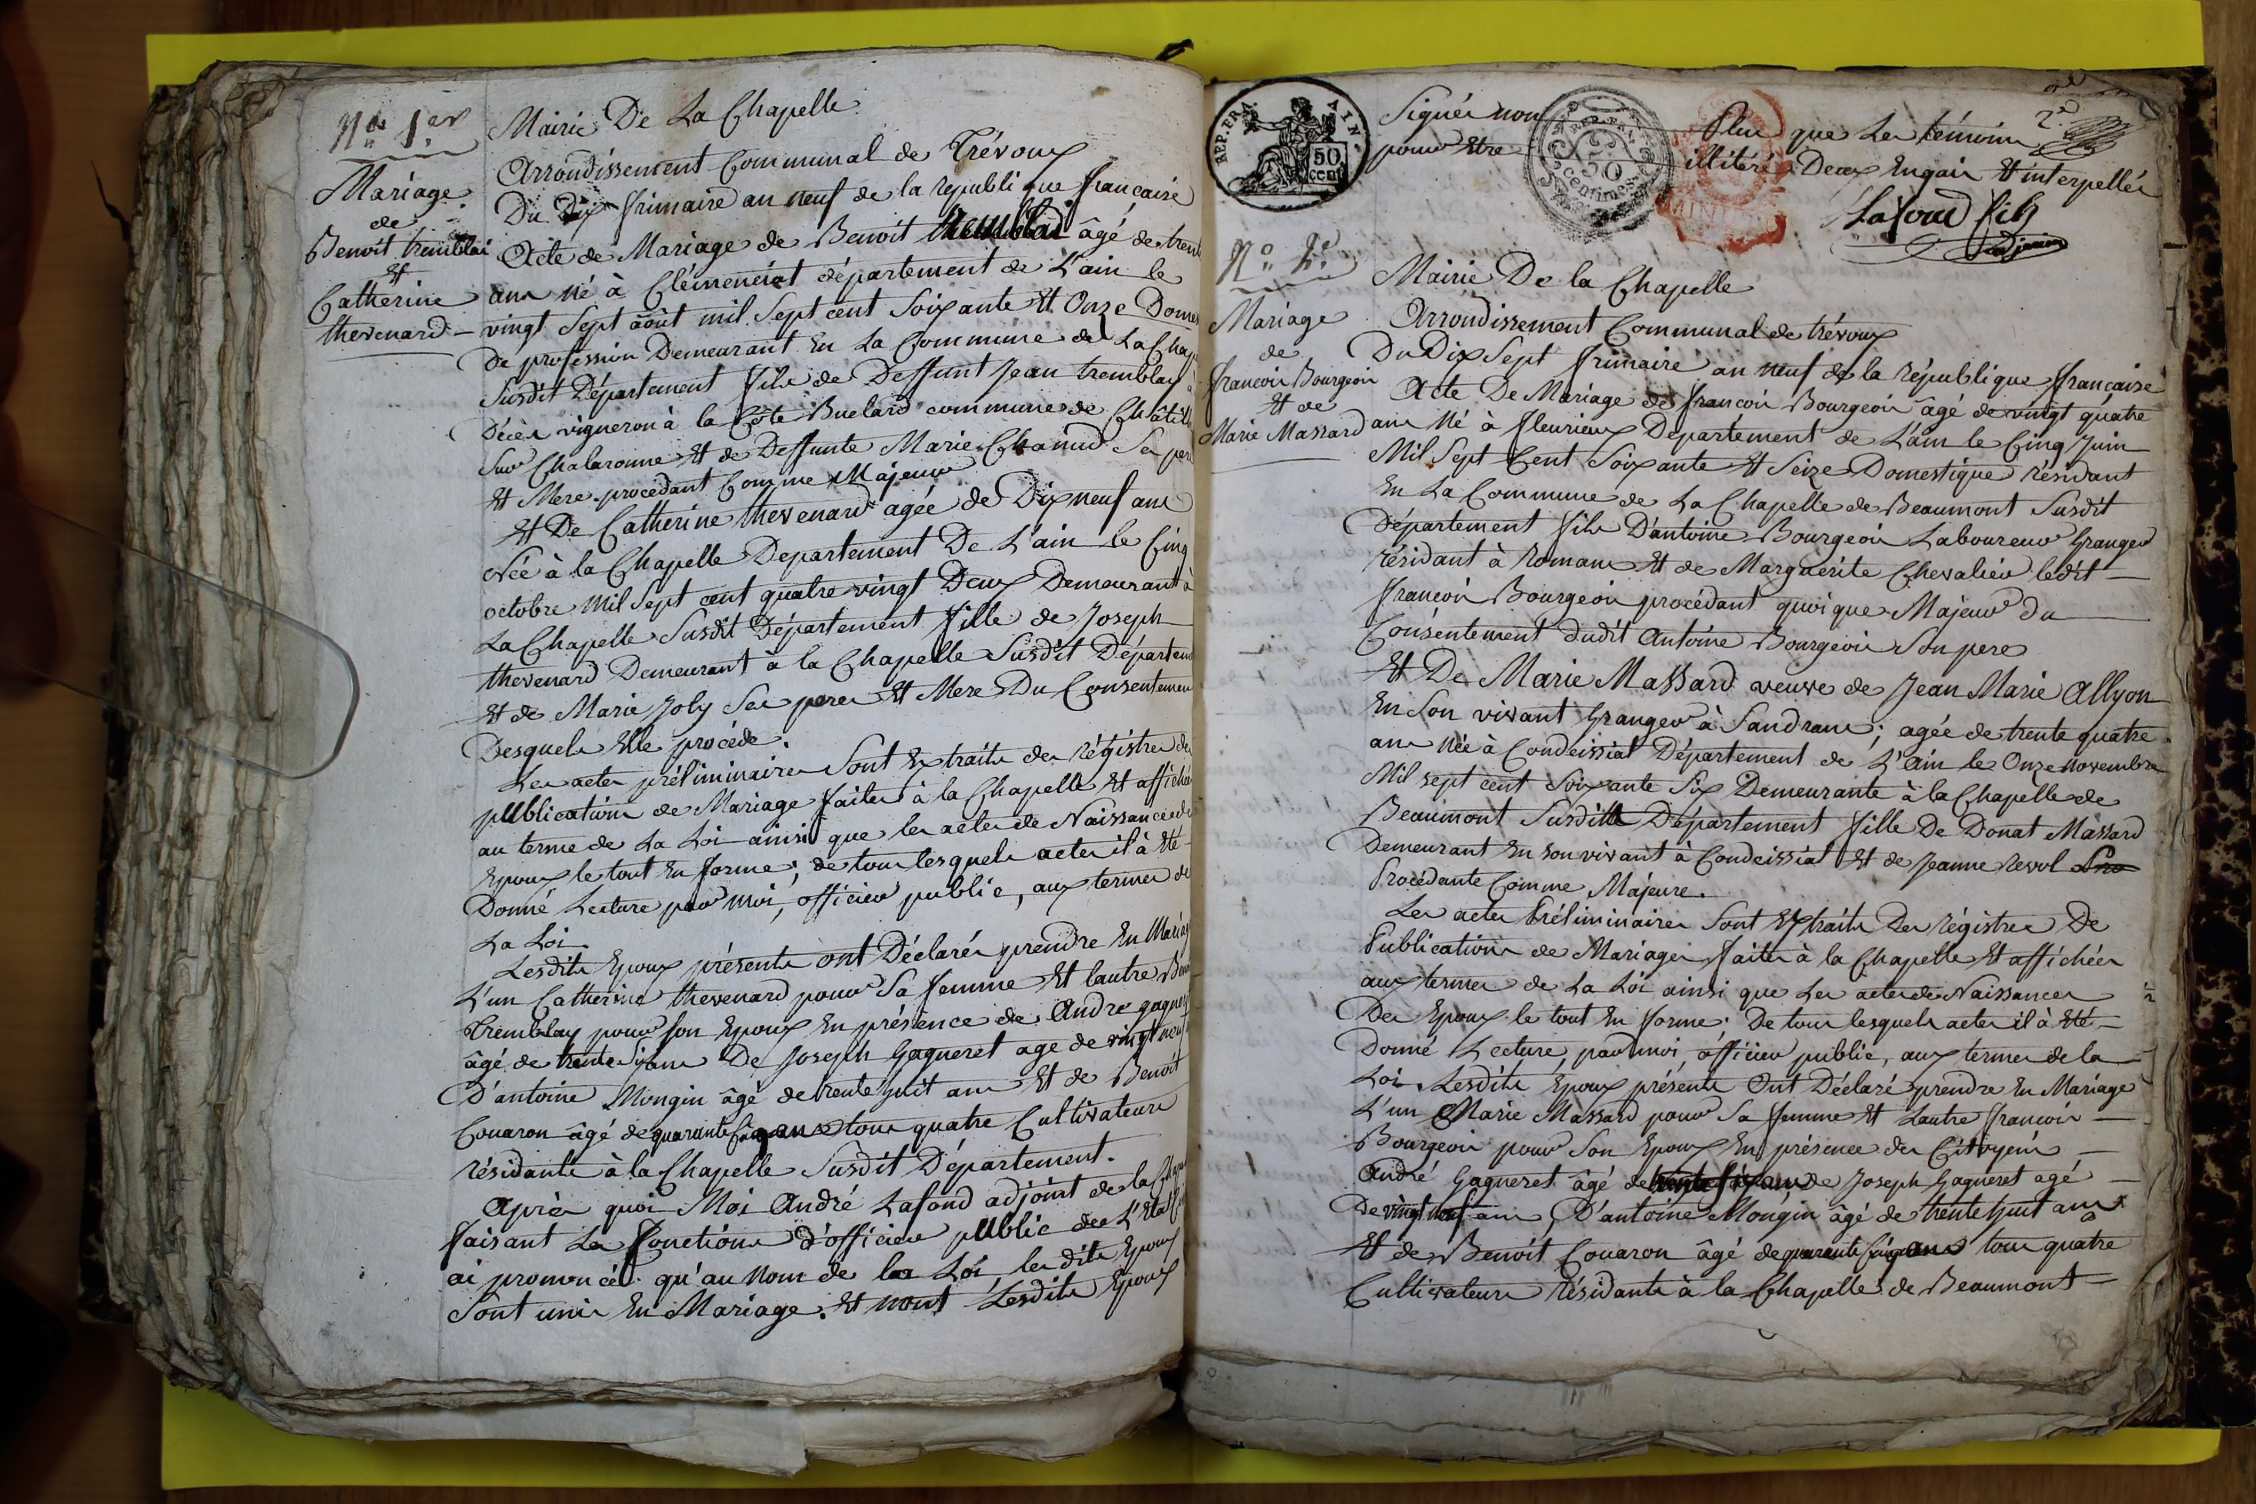 N.º 1.er
Mariage
de
Benoit tremblai
et
Catherine
thevenard
Mairie De La Chapelle
Arrondissement Communal de Trévoux
Du Dix frimaire an neuf de la republique française
Acte de Mariage de Benoit tremblai âgé de trente
ans né à Clémenciat département de L'ain le
vingt Sept août mil Sept cent Soixante Et Onze Domes
De profession Demeurant En La Commune de La Chap
Susdit Département fils de Deffunt Jean tremblay à
Décès vigneron à la Côte Buelard commune de Châtill
Sur Chalaronne Et de Deffunte Marie Chanud Ses pere
Et Mere procedant Comme Majeur
Et De Catherine thevenard agée de Dix neuf ans
Née à la Chapelle Departement De L'ain le Cinq
octobre Mil Sept cent quatre vingt Deux Demeurant à
La Chapelle Susdit Département fille de Joseph
thevenard Demeurant à la Chapelle Susdit Départem
Et de Marie Joly Ses pere Et Mere Du Consentement
Desquels Elle procéde.
Les actes préliminaires Sont Extraits des régistres de
publications de Mariage faites à la Chapelle Et affichée
au terme de La Loi ainsi que les actes de Naissance des
Epoux le tout En forme; de tous lesquels actes il à Eté
Donné Lecture par moi, officier public, aux termes de
La Loi
Lesdits Epoux présents ont Déclarés prendre En Mariage
L'un Catherine thevenard pour Sa femme Et lautre Ben
Tremblay pour son Epoux En présence de André gagneret
âgé de trente six ans De Joseph Gagneret age de vingt neuf
D'antoine Mongin âgé de trente huit ans Et de Benoit
Couaron âgé de quarante cinq ans tous quatre Cultivateurs
résidants à la Chapelle Susdit Département.
Après quoi Moi André Lafond adjoint de la Chap
faisant Les fonctions d'officier public de L'Etat
ai prononcé qu'au Nom de la Loi les dits Epoux
Sont unis En Mariage. Et nont Lesdits Epoux
2e
Signés non Plus que Les témoins
pour Etre illitérés Deux Enquis Et interpellés
Lafond fils
adjoint
REP. FRA. AIN.
50 cent
REP. FRA.
50
centimes
N.º 2.e
Mariage
de
francois Bourgeois
Et de
Marie Massard
Mairie De la Chapelle
Arrondissement Communal de trévoux
Du Dix Sept frimaire an neuf de la république française
Acte De Mariage de francois Bourgeois âgé de vingt quatre
ans Né à fleurieux Departement de L'ain le Cinq Juin
Mil Sept Cent Soixante Et Seize Domestique résidant
En La Commune de La Chapelle de Beaumont Susdit
Département fils D'antoine Bourgeois Laboureur Granger
résidant à Romans Et de Marguerite Chevalier ledit
francois Bourgeois procédant quoique Majeur du
Consentement dudit Antoine Bourgeois Son pere
Et De Marie Massard veuve de Jean Marie Allyon
En Son vivant Granger à Sandrans; agée de trente quatre
ans Née à Condeissiat Département de L'ain le Onze Novembre
Mil sept cent Soixante Six Demeurante à la Chapelle de
Beaumont Susdit Département fille De Donat Massard
Demeurant En son vivant à Condeissiat Et de Jeanne revol Pro
Procédante Comme Majeure.
Les actes Préliminaires Sont Extraits Des régistres De
Publications de Mariages faites à la Chapelle Et affichées
aux termes de La Loi ainsi que Les actes de Naissances
Des Epoux le tout En forme; De tous lesquels actes il à Eté
Donné Lecture, par moi, officier public, aux termes de la
Loi. Lesdits Epoux présents Ont Déclaré prendre En Mariage
L'un Marie Massard pour Sa femme Et Lautre francois
Bourgeois pour Son Epoux En présence des Citoyens
André Gagneret âgé de trente six ans de Joseph Gagneret agé
De vingt neuf ans, D'antoine Mongin âgé de trente huit ans
Et de Benoit Couaron âgé de quarante cinq ans tous quatre
Cultivateurs résidants à la Chapelle de Beaumont